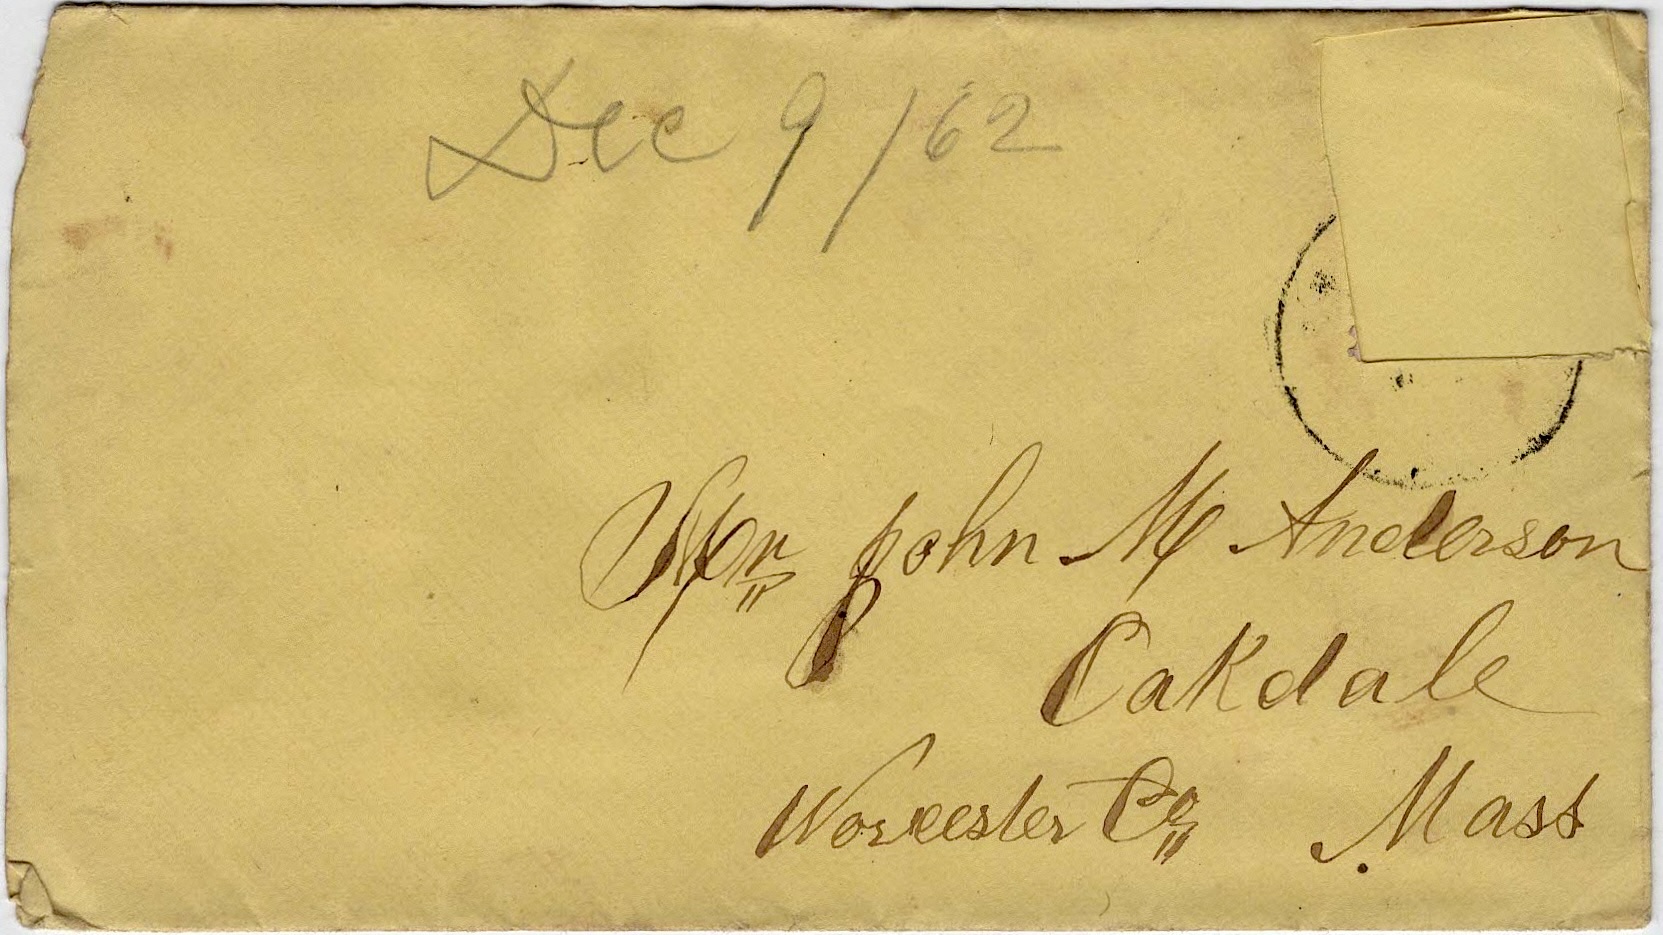 Dec 9/62
Mr John M Anderson
Oakdale
Worcester Co Mass